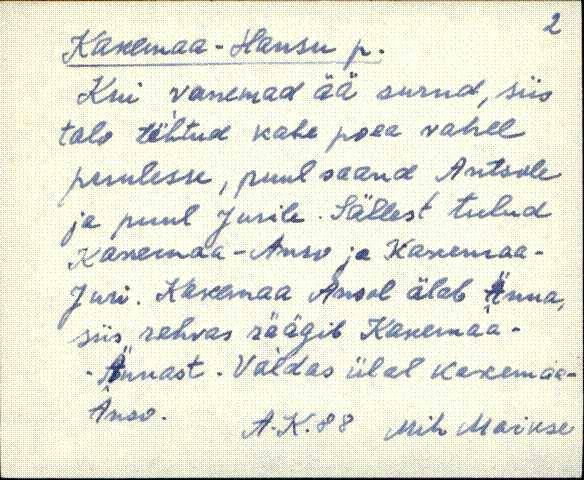 2
Karemaa-Hansu p.
Kui vanemad ää surnd, siis
talo tehtud kahe poea vahel
puulesse, puul saand Antsole
ja puul Jurile. Sällest tulud
Karemaa-Anso ja Karemaa-
Juri. Karemaa Ansol älab Änna,
siis rahvas räägib Karemaa-
-Ännast. Valdas ülal karemaa-
Änso.
A.K. 88 Mih Maivse